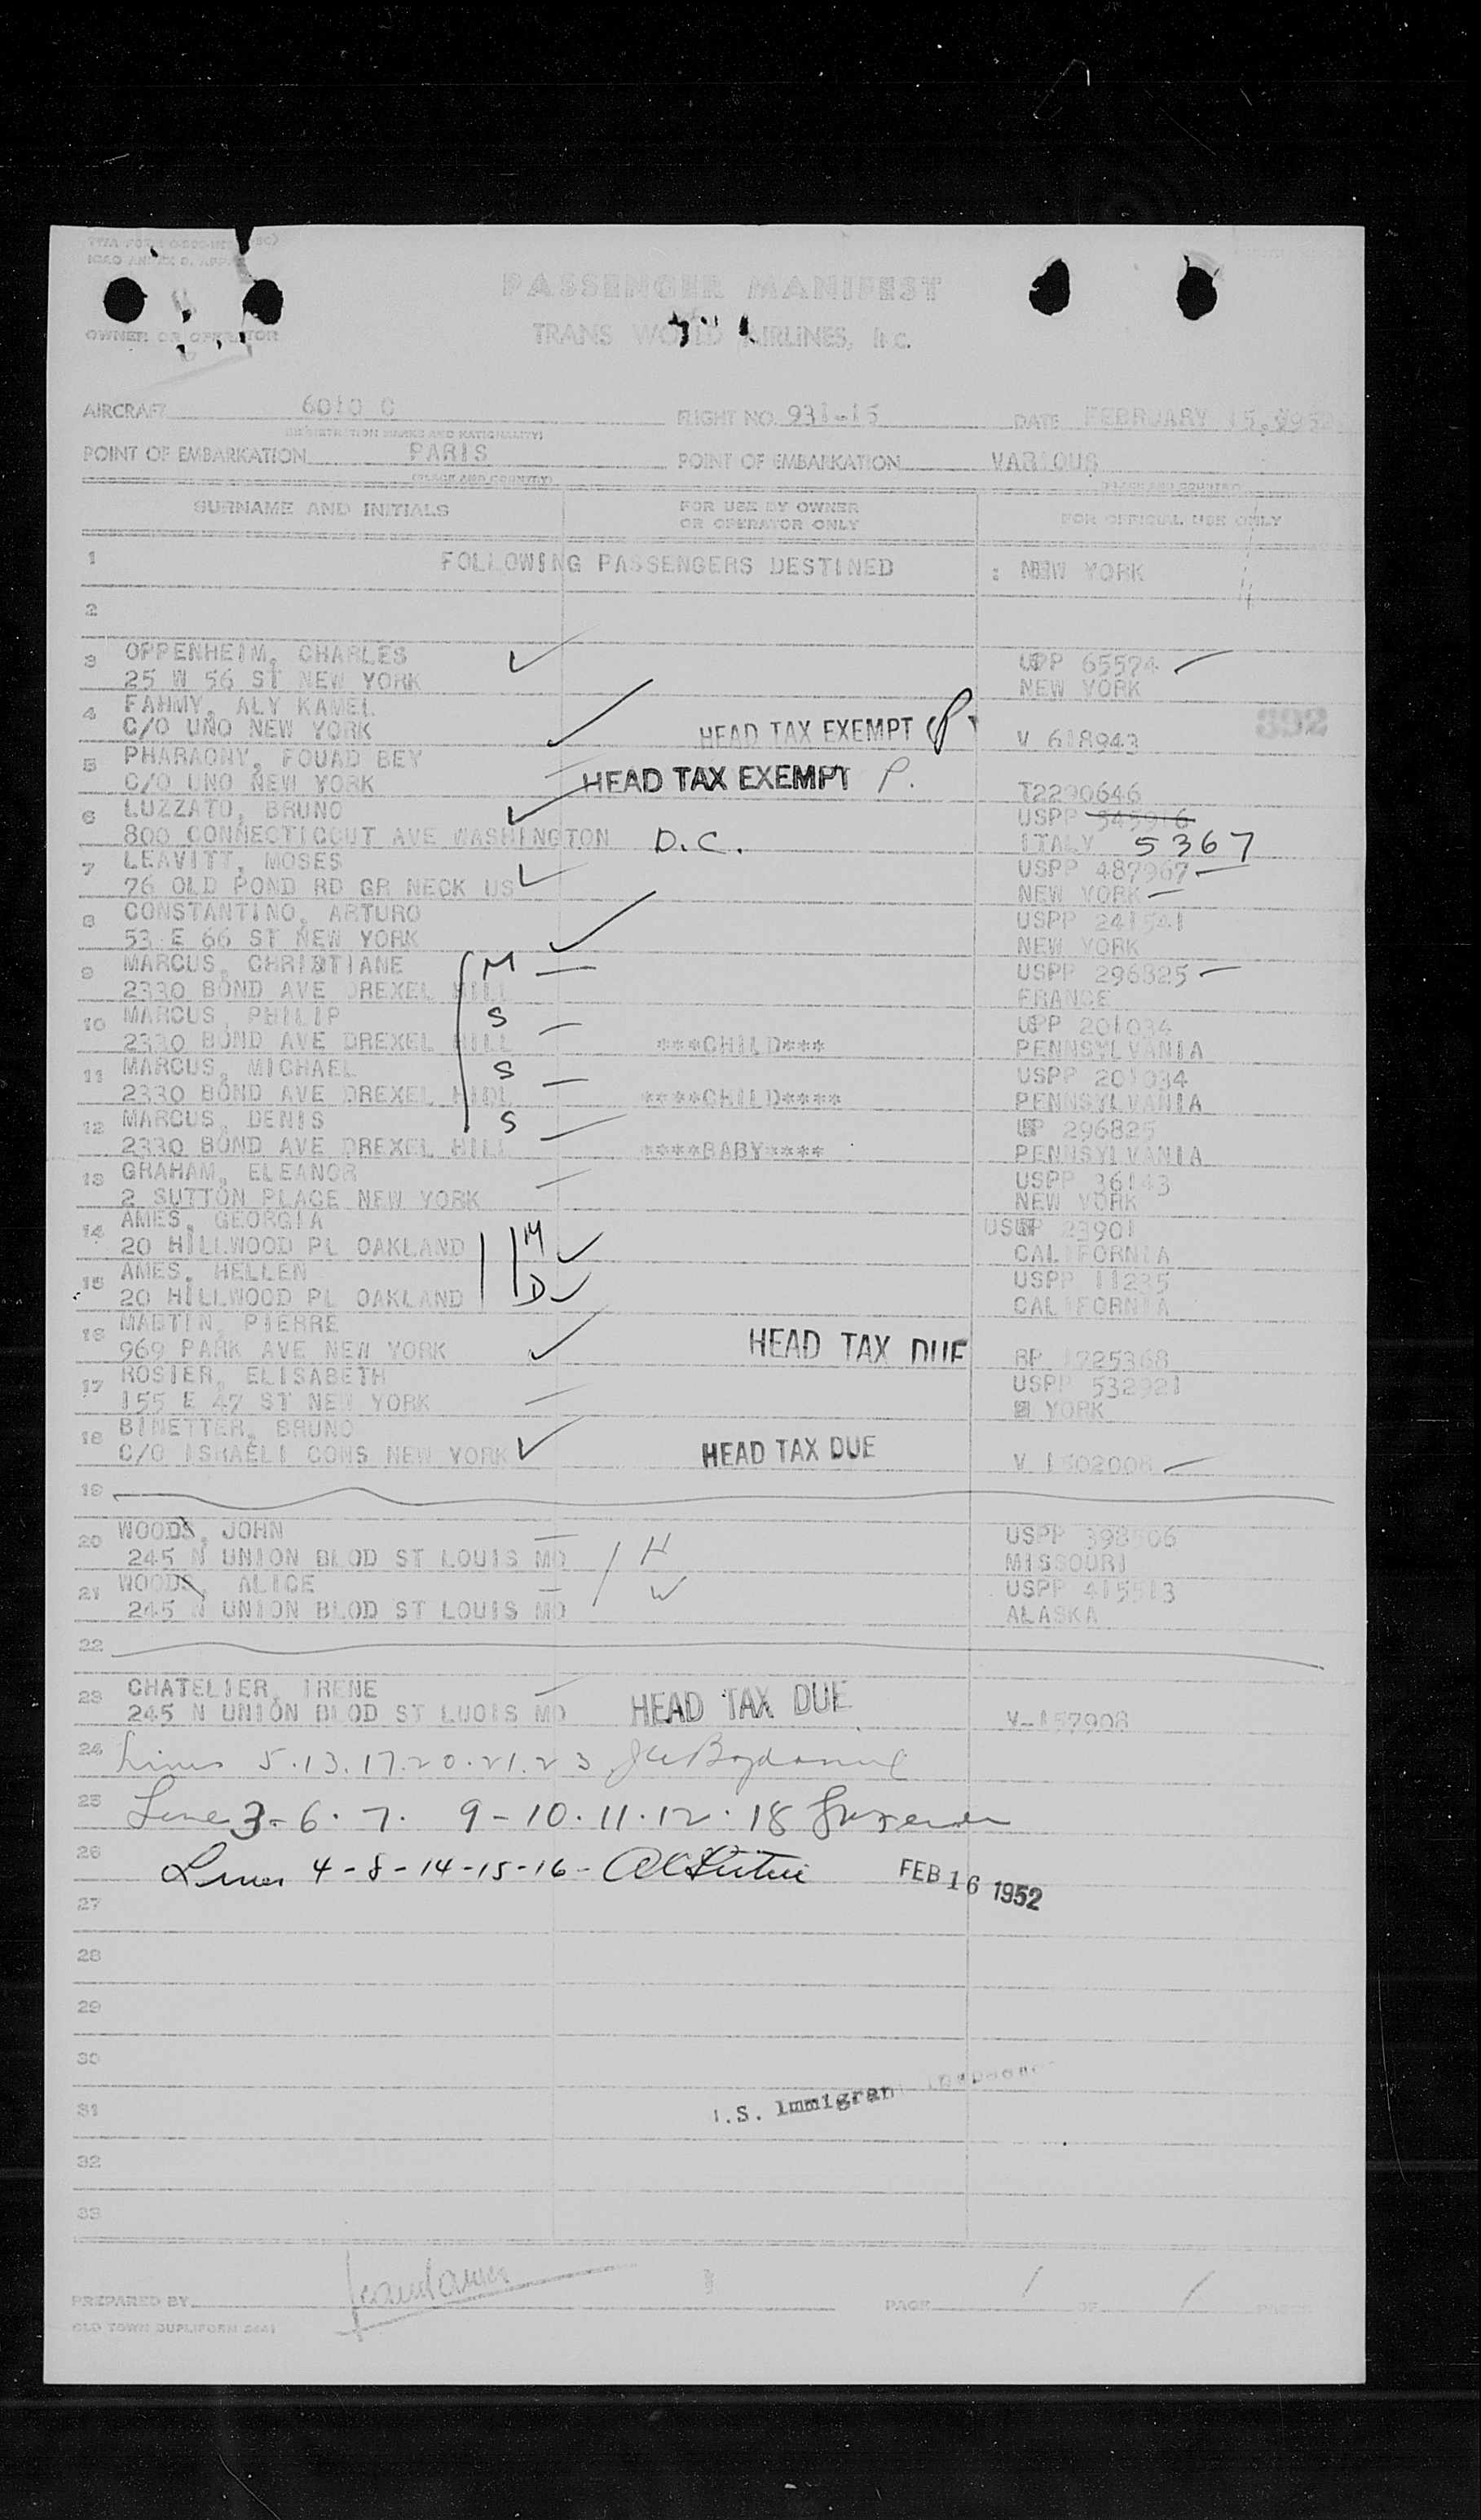 OWNER OR OPERATOR
PASSENGER MANIFEST
TRANS WORLD AIRLINES, INC.
AIRCRAFT 6010 C FLIGHT NO. 931-15 DATE FEBRUARY 15,
(REGISTRATION MARKS AND NATIONALITY)
POINT OF EMBARKATION PARIS POINT OF EMBARKATION VARIOUS
(PLACE AND COUNTRY) (PLACE AND COUNTRY)
SURNAME AND INITIALS FOR USE BY OWNER OR OPERATOR ONLY FOR OFFICIAL USE ONLY
1 FOLLOWING PASSENGERS DESTINED : NEW YORK
2
3 OPPENHEIM, CHARLES 65574
25 W 56 ST NEW YORK NEW YORK
892
4 FAHMY, ALY KAMEL
C/O UNO NEW YORK HEAD TAX EXEMPT P. V 618943
5 PHARAONY, FOUAD BEY
C/O UNO NEW YORK HEAD TAX EXEMPT P. T2290646
6 LUZZATO, BRUNO USPP 345916
800 CONNECTICOUT AVE WASHINGTON D.C. ITALY 5367
7 LEAVITT, MOSES USPP 487967
76 OLD POND RD GR NECK US NEW YORK
8 CONSTANTINO, ARTURO USPP 241541
53 E 66 ST NEW YORK NEW YORK
9 MARCUS, CHRISTIANE M USPP 296825
2330 BOND AVE DREXEL HILL FRANCE
10 MARCUS, PHILIP S 201034
2330 BOND AVE DREXEL HILL ***CHILD*** PENNSYLVANIA
11 MARCUS, MICHAEL S USPP 201034
2330 BOND AVE DREXEL HIDL ****CHILD***** PENNSYLVANIA
12 MARCUS, DENIS S 296825
2330 BOND AVE DREXEL HILL ****BABY**** PENNSYLVANIA
13 GRAHAM, ELEANOR USPP 36143
2 SUTTON PLACE NEW YORK NEW YORK
14 AMES, GEORGIA M 23901
20 HILLWOOD PL OAKLAND CALIFORNIA
15 AMES, HELLEN D USPP 11235
20 HILLWOOD PL OAKLAND CALIFORNIA
16 MARTIN, PIERRE
969 PARK AVE NEW YORK HEAD TAX DUE RP 1725368
17 ROSIER, ELISABETH USPP 532921
155 E 47 ST NEW YORK YORK
18 BINETTER, BRUNO
C/O ISRAELI CONS NEW YORK HEAD TAX DUE V 1502008
19
20 WOODS, JOHN H USPP 398506
245 N UNION BLOD ST LOUIS MO MISSOURI
21 WOODS, ALICE W USPP 415513
245 N UNION BLOD ST LOUIS MO ALASKA
22
23 CHATELIER, IRENE
245 N UNION BLOD ST LUOIS MO HEAD TAX DUE V-157908
24 Lines 5.13.17.20.21.23
25 Line 3-6.7. 9-10.11.12.18
26 Lines 4-8-14-15-16- FEB 16 1952
27
28
29
30
31 .S. Immigran
32
33
PREPARED BY PAGE 1 OF 1
OLD TOWN DUPLIFORM